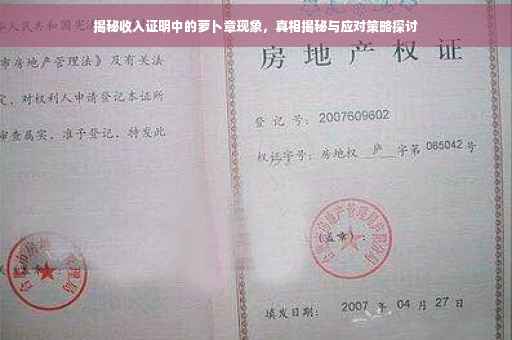 揭秘收入证明中的萝卜章现象，真相揭秘与应对策略探讨
华人民共和国宪
市房地产管理法》及有关
定，对权利人申请登记本证所
审查属实，准予登记，特发此
房地产权证
登记号：2007609602
权证字号：房地权 庐 字第 065042 号
(盖章)：
填发日期：2007 年 04 月 27 日